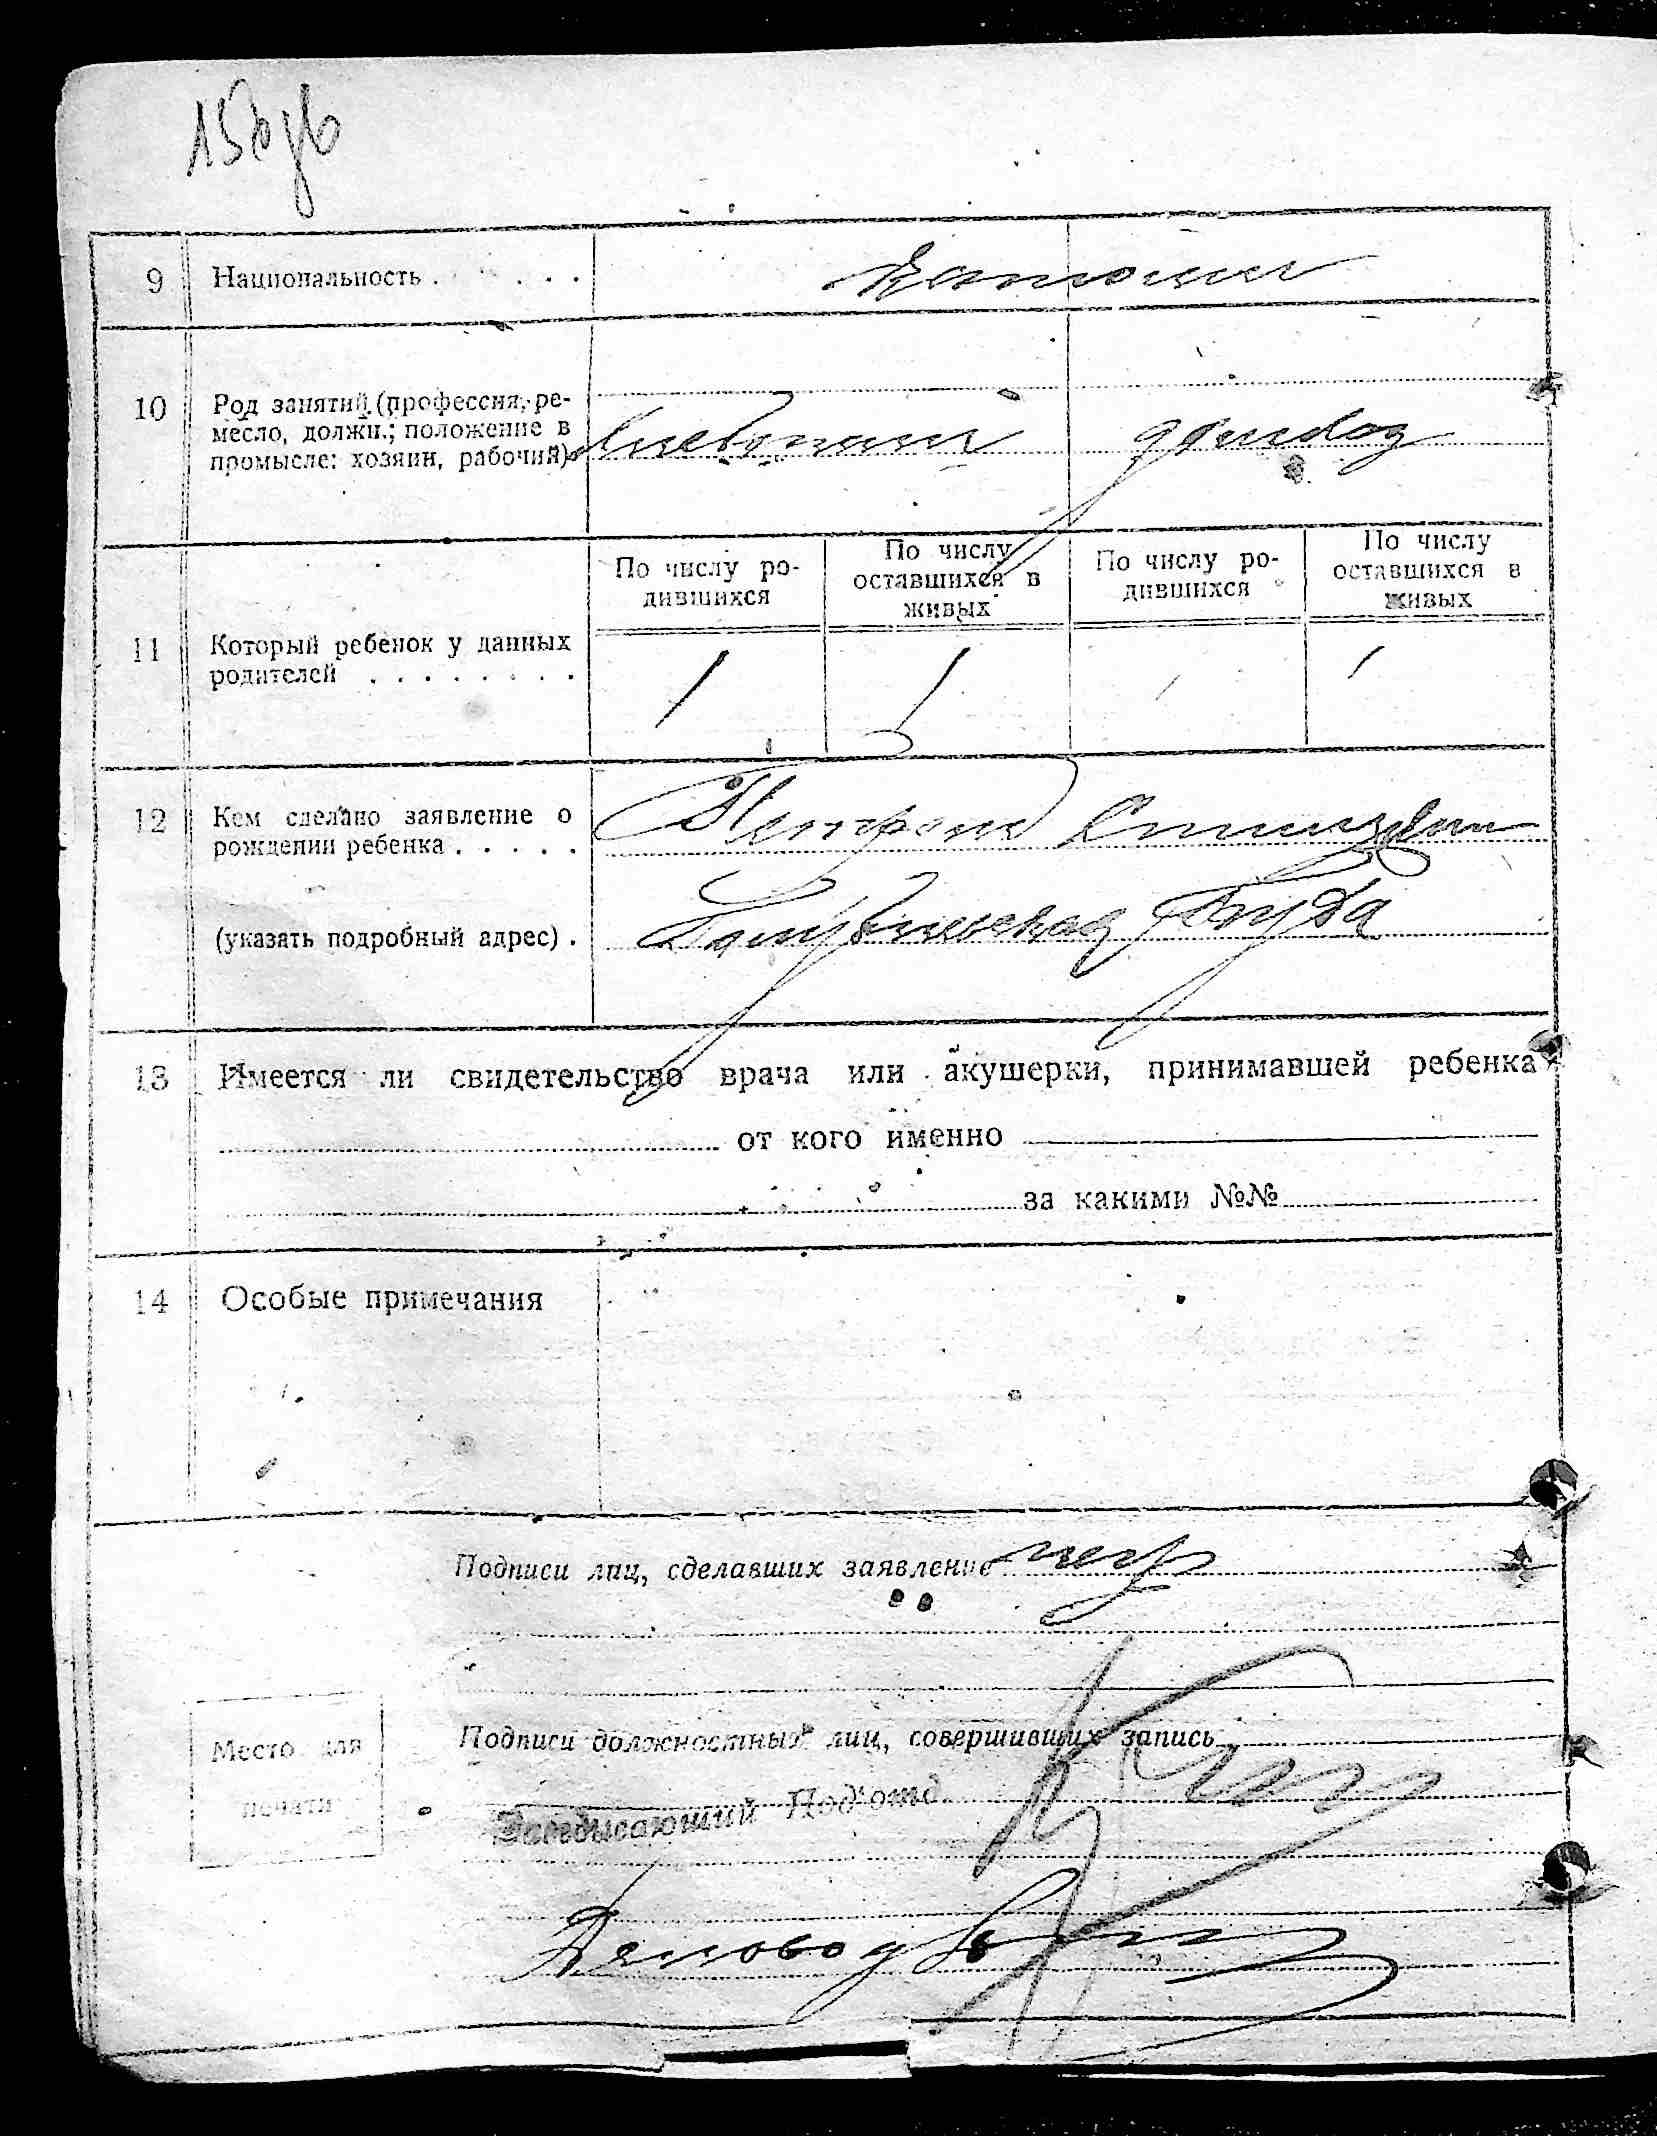 9 Национальность . . . . . католики
10 Род занятий (профессия, ре-
месло, должн.; положение в
промысле: хозяин, рабочий)
хлебопашц
По числу ро-
дившихся
По числу
оставшихся в
живых
По числу ро-
дившихся
По числу
оставшихся в
живых
11 Который ребенок у данных
родителей . . . . . . . .
1 1 1 1
12 Кем сделано заявление о
рождении ребенка . . . . .
(указать подробный адрес) . Буда
13 Имеется ли свидетельство врача или акушерки, принимавшей ребенка
от кого именно
за какими №№
14 Особые примечания
Подписи лиц, сделавших заявление негр
Место для
печати
Подписи должностных лиц, совершивших запись
Заведывающий Под'отд.
Деловод